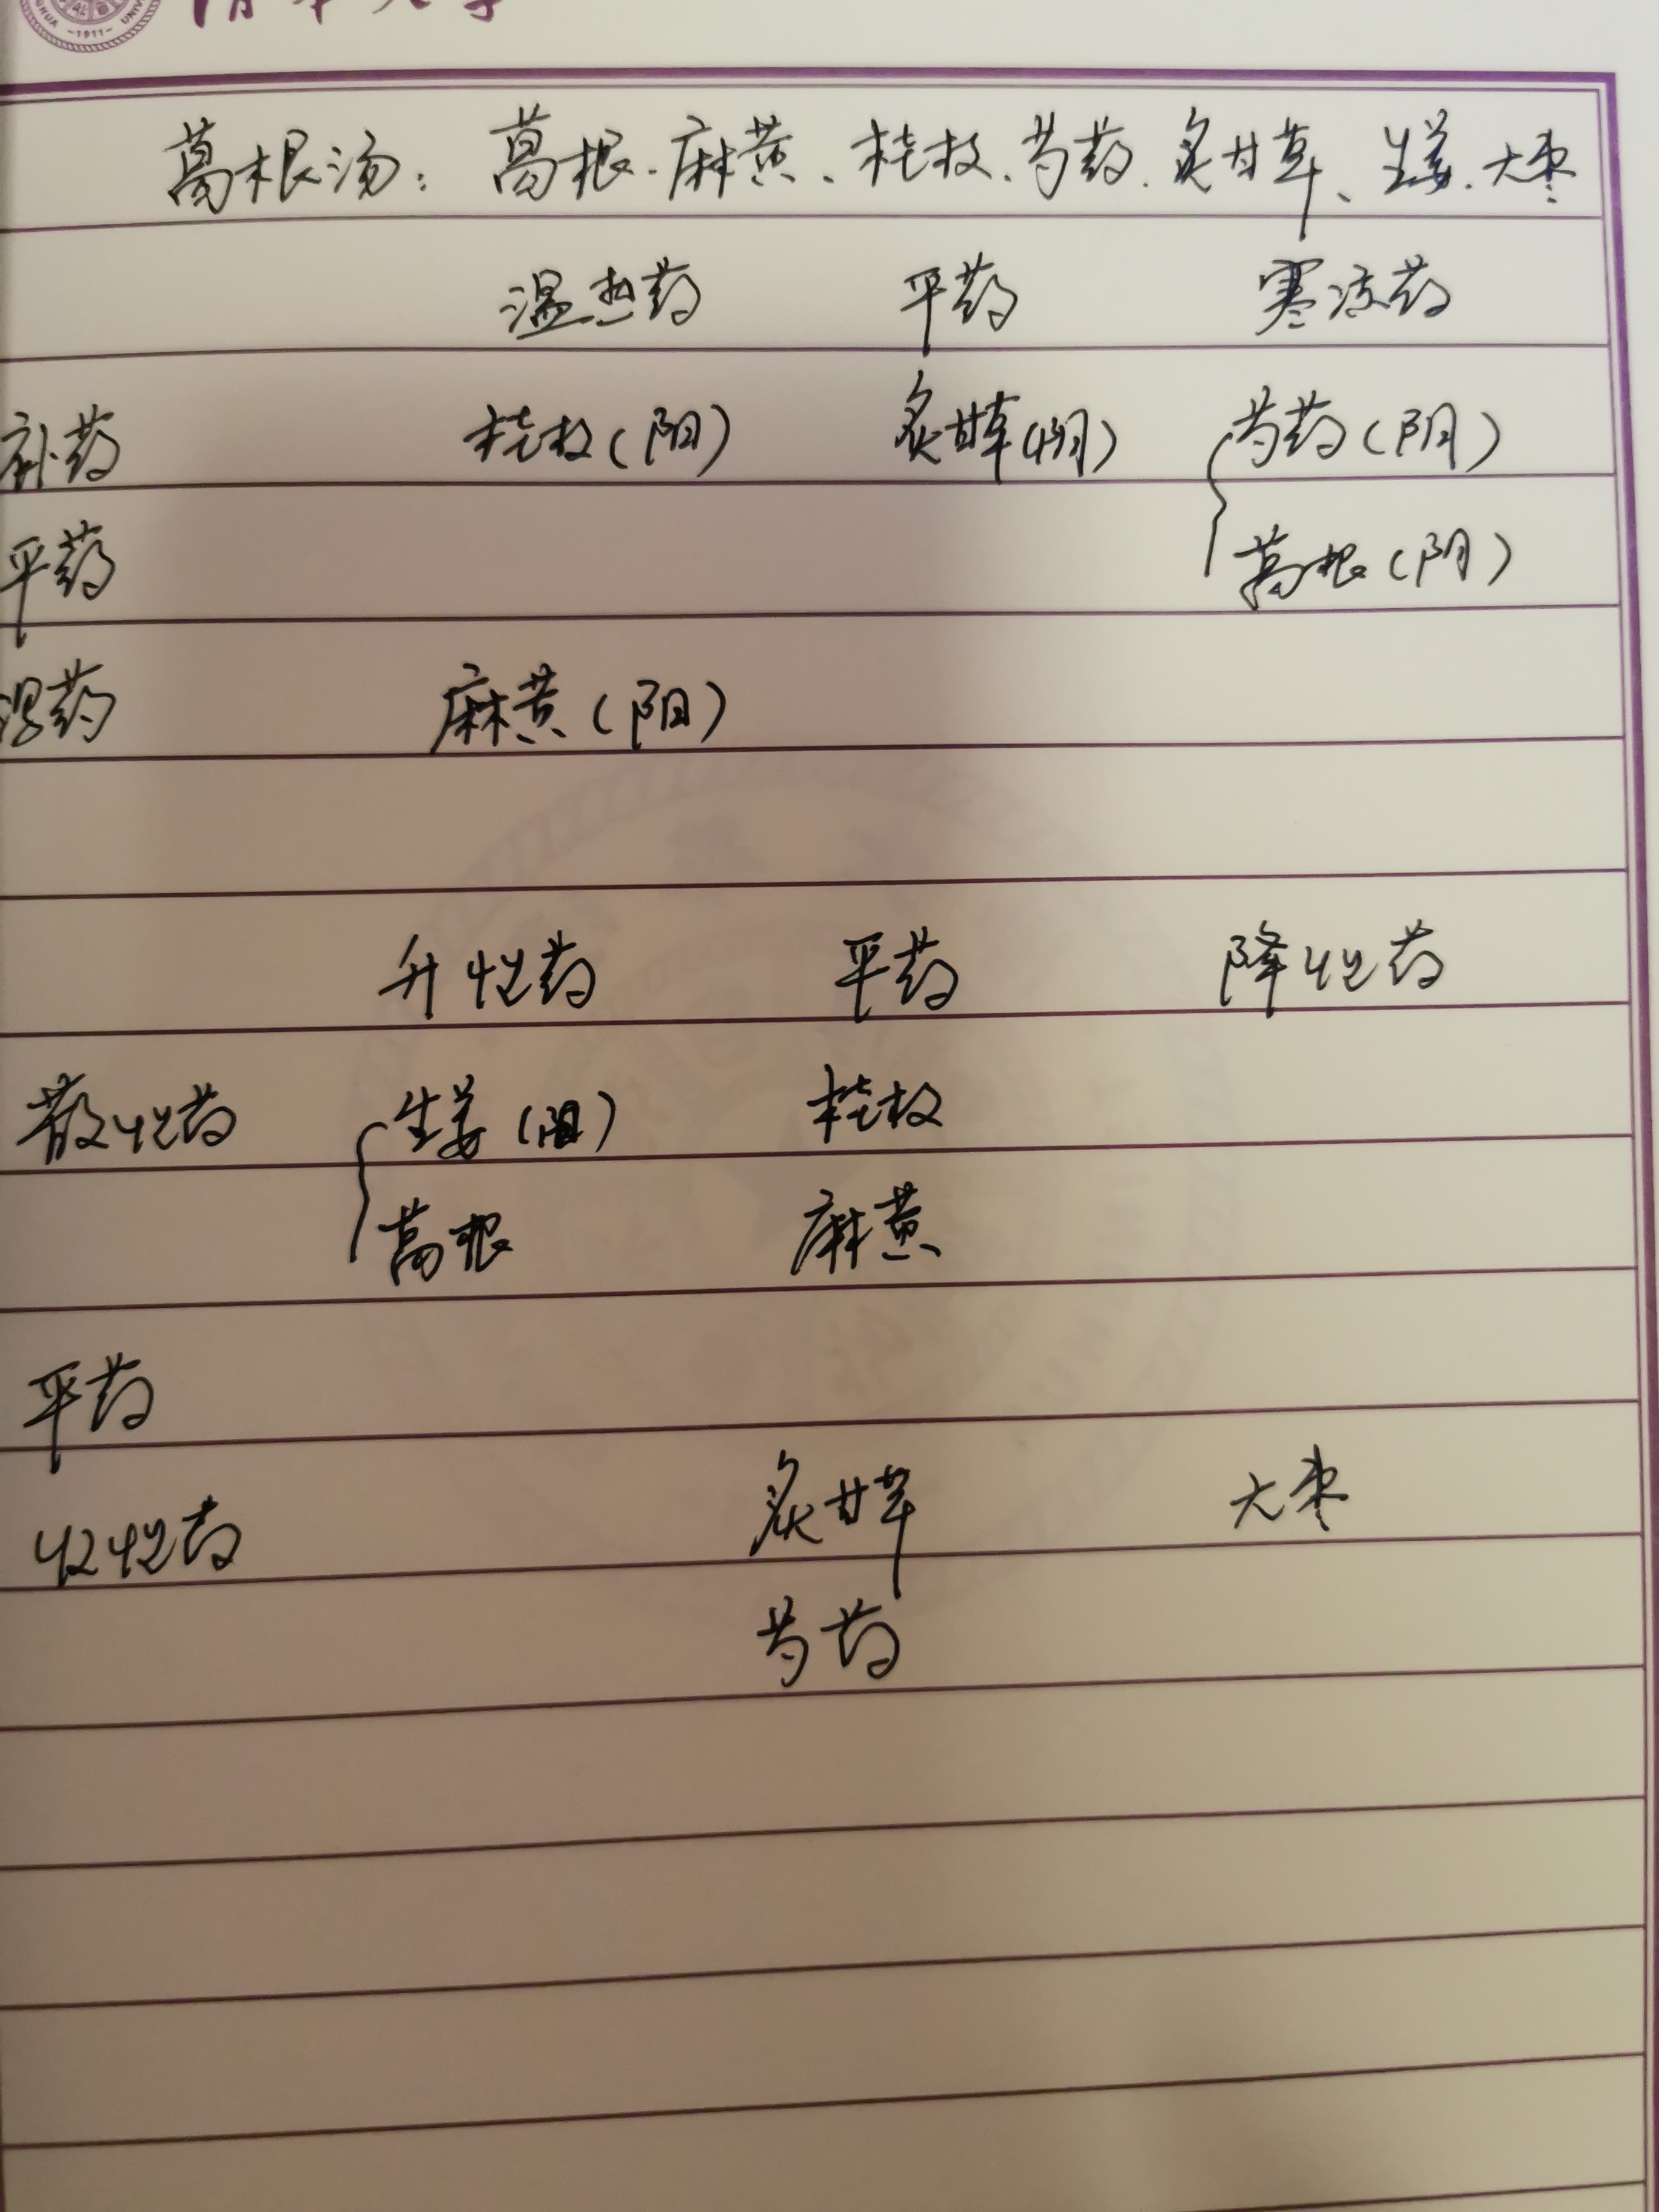 -1911-
葛根汤：葛根、麻黄、桂枝、芍药、炙甘草、生姜、大枣
温热药 平药 寒凉药
补药 桂枝（阳） 炙甘草（阴） 芍药（阴）
平药 葛根（阴）
泻药 麻黄（阳）
升性药 平药 降性药
散性药 生姜（阳） 桂枝
葛根 麻黄
平药
收性药 炙甘草 大枣
芍药